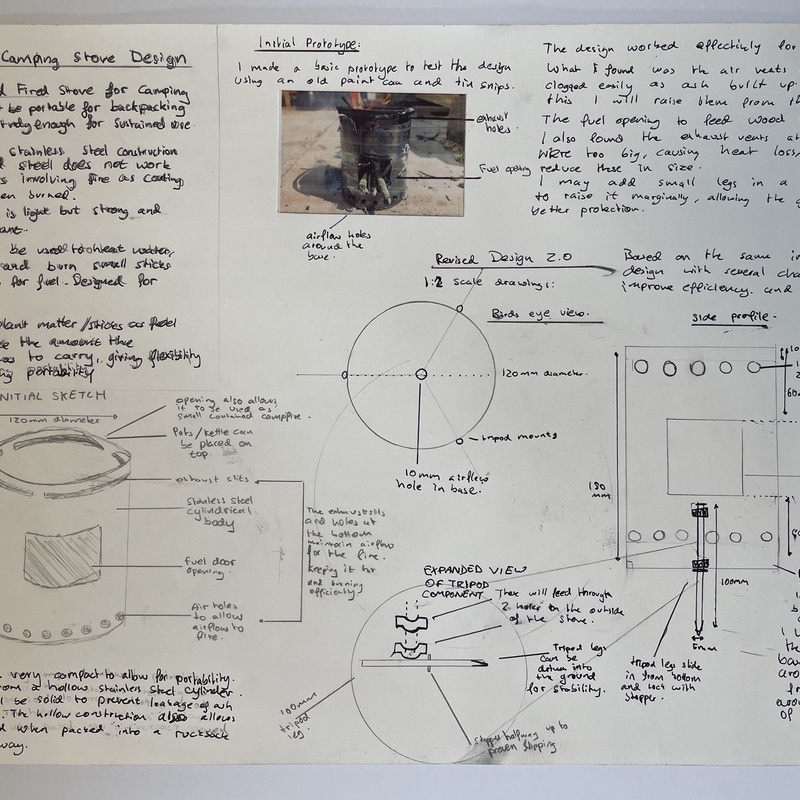 Camping Stove Design
Fired Stove for Camping
be portable for backpacking
enough for sustained use
stainless steel construction
steel does not work
involving fire as coating
burned.
is light but strong and
be used to heat water,
and burn small sticks
for fuel. Designed for
plant matter/sticks as fuel
the amount the
to carry, giving flexibility
portability
INITIAL SKETCH
120mm diameter
opening also allows
it to be used as
small contained campfire.
Pots/kettle can
be placed on
top
exhaust slits
stainless steel
cylindrical
body
Fuel door
opening.
Air holes
to allow
airflow to
fire.
The exhaust slits
and holes at
the bottom
maintain airflow
for the fire.
keeping it hot
and burning
efficiently
very compact to allow for portability.
from a hollow stainless steel cylinder.
be solid to prevent leakage of ash
The hollow construction also allows
when packed into a rucksack
way.
Initial Prototype:
I made a basic prototype to test the design
using an old paint can and tin snips.
exhaust
holes.
Fuel opening
airflow holes
around the
base.
The design worked effectively for
What I found was the air vents
clogged easily as ash built up.
this I will raise them from th
The fuel opening to feed wood
I also found the exhaust vents at
were too big, causing heat loss,
reduce these in size.
I may add small legs in a
to raise it marginally, allowing the
better protection.
Revised Design 2.0
1:2 scale drawings:
Birds eye view.
120mm diameter.
tripod mounts
10mm airflow
hole in base.
Based on the same in
design with several cha
improve efficiency. and
side profile.
10
60m
180
mm
100mm
5mm
tripod legs slide
in from bottom
and lock with
stopper.
EXPANDED VIEW
OF TRIPOD
COMPONENT
These will feed through
2 holes on the outside
of the stove.
Tripod legs
can be
driven into
the ground
for stability.
100mm
tripod
leg.
stopper halfway up to
prevent slipping